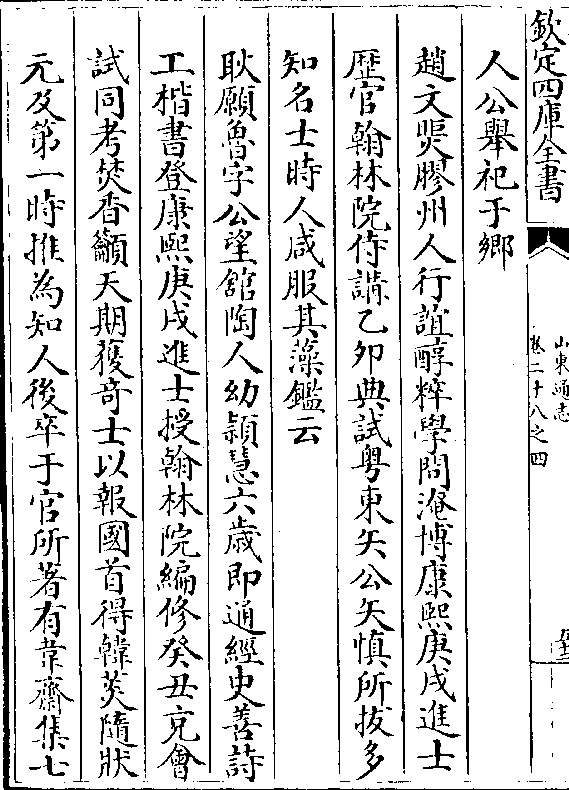 欽定四庫全書
山東通志
卷二十八之四
人公舉祀于鄉
趙文煚膠州人行誼醇粹學問淹博康熙庚戌進士
歴官翰林院侍講乙卯典試粤東矢公矢慎所拔多
知名士時人咸服其藻鑑云
耿願魯字公望舘陶人幼頴慧六歳即通經史善詩
工楷書登康熙庚戌進士授翰林院編修癸丑充會
試同考焚香籲天期獲竒士以報國首得韓菼隨狀
元及第一時推為知人後卒于官所著有韋齋集七